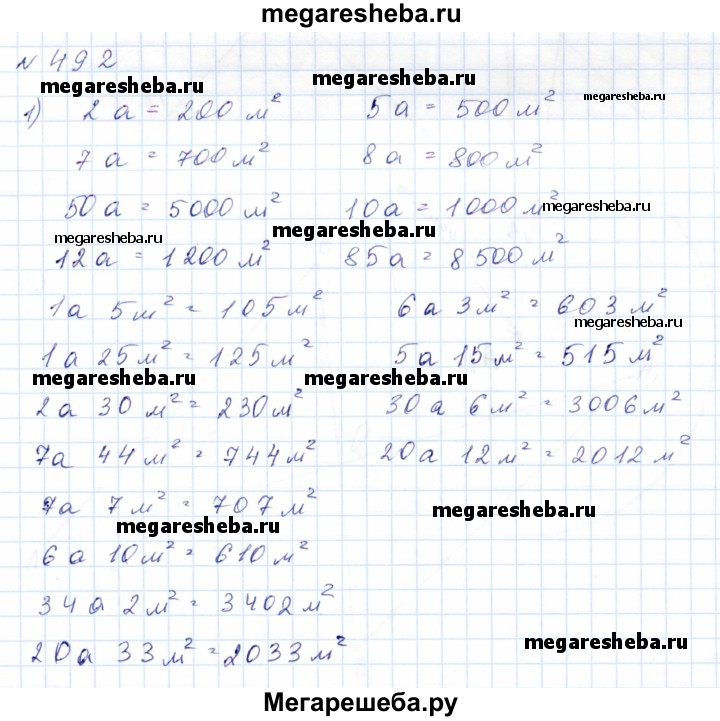 megaresheba.ru
№ 492
megaresheba.ru megaresheba.ru megaresheba.ru
1) 2 а = 200 м² 5 а = 500 м²
7 а = 700 м² 8 а = 800 м²
50 а = 5000 м² 10 а = 1000 м² megaresheba.ru
megaresheba.ru megaresheba.ru
12 а = 1200 м² 85 а = 8500 м²
1 а 5 м² = 105 м² 6 а 3 м² = 603 м²
megaresheba.ru
1 а 25 м² = 125 м² 5 а 15 м² = 515 м²
megaresheba.ru megaresheba.ru
2 а 30 м² = 230 м² 30 а 6 м² = 3006 м²
7 а 44 м² = 744 м² 20 а 12 м² = 2012 м²
7 а 7 м² = 707 м²
megaresheba.ru megaresheba.ru
6 а 10 м² = 610 м²
34 а 2 м² = 3402 м²
20 а 33 м² = 2033 м² megaresheba.ru
Мегарешеба.ру